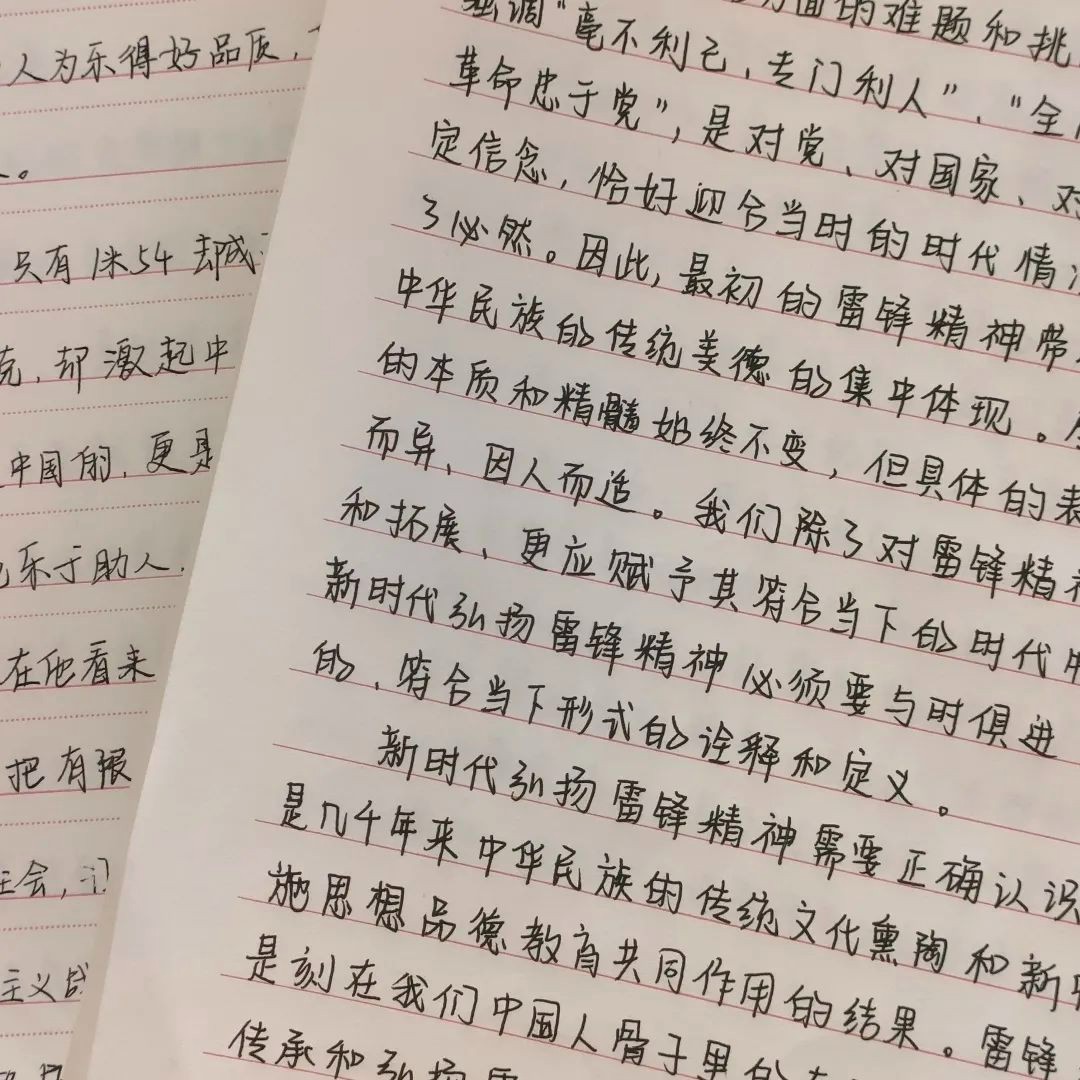 人为乐得好品质,
。
只有1米54却
却激起中
中国的,更是
乐于助人,
在他看来
把有限
会,
主义战
方面的难题和挑
强调“毫不利己,专门利人”、“全
革命忠于党”,是对党、对国家、对
定信念,恰好迎合当时的时代情
了必然。因此,最初的雷锋精神带
中华民族的传统美德的集中体现。
的本质和精髓始终不变,但具体的表
而异、因人而造。我们除了对雷锋精神
和拓展、更应赋予其符合当下的时代
新时代弘扬雷锋精神必须要与时俱进
的、符合当下形式的诠释和定义。
新时代弘扬雷锋精神需要正确认识
是几千年来中华民族的传统文化熏陶和新中
施思想品德教育共同作用的结果。雷锋
是刻在我们中国人骨子里的
传承和弘扬雷